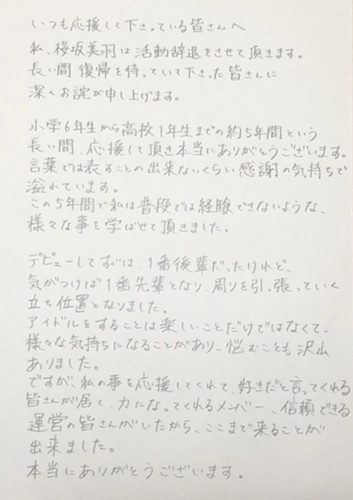 いつも応援して下さっている皆さんへ
私、桜坂美羽は活動辞退をさせて頂きます。
長い間復帰を待っていて下さった皆さんに
深くお詫び申し上げます。
小学6年生から高校1年生までの約5年間という
長い間、応援して頂き本当にありがとうございます。
言葉では表すことの出来ないくらい感謝の気持ちで
溢れています。
この5年間で私は普段では経験できないような、
様々な事を学ばせて頂きました。
デビューしてすぐは、1番後輩だったけれど、
気がつけば1番先輩となり、周りを引っ張っていく
立ち位置となりました。
アイドルをすることは楽しいことだけではなくて、
様々な気持ちになることがあり、悩むことも沢山
ありました。
ですが、私の事を応援してくれて、好きだと言ってくれる
皆さんが居て、力になってくれるメンバー、信頼できる
運営の皆さんがいたから、ここまで来ることが
出来ました。
本当にありがとうございます。